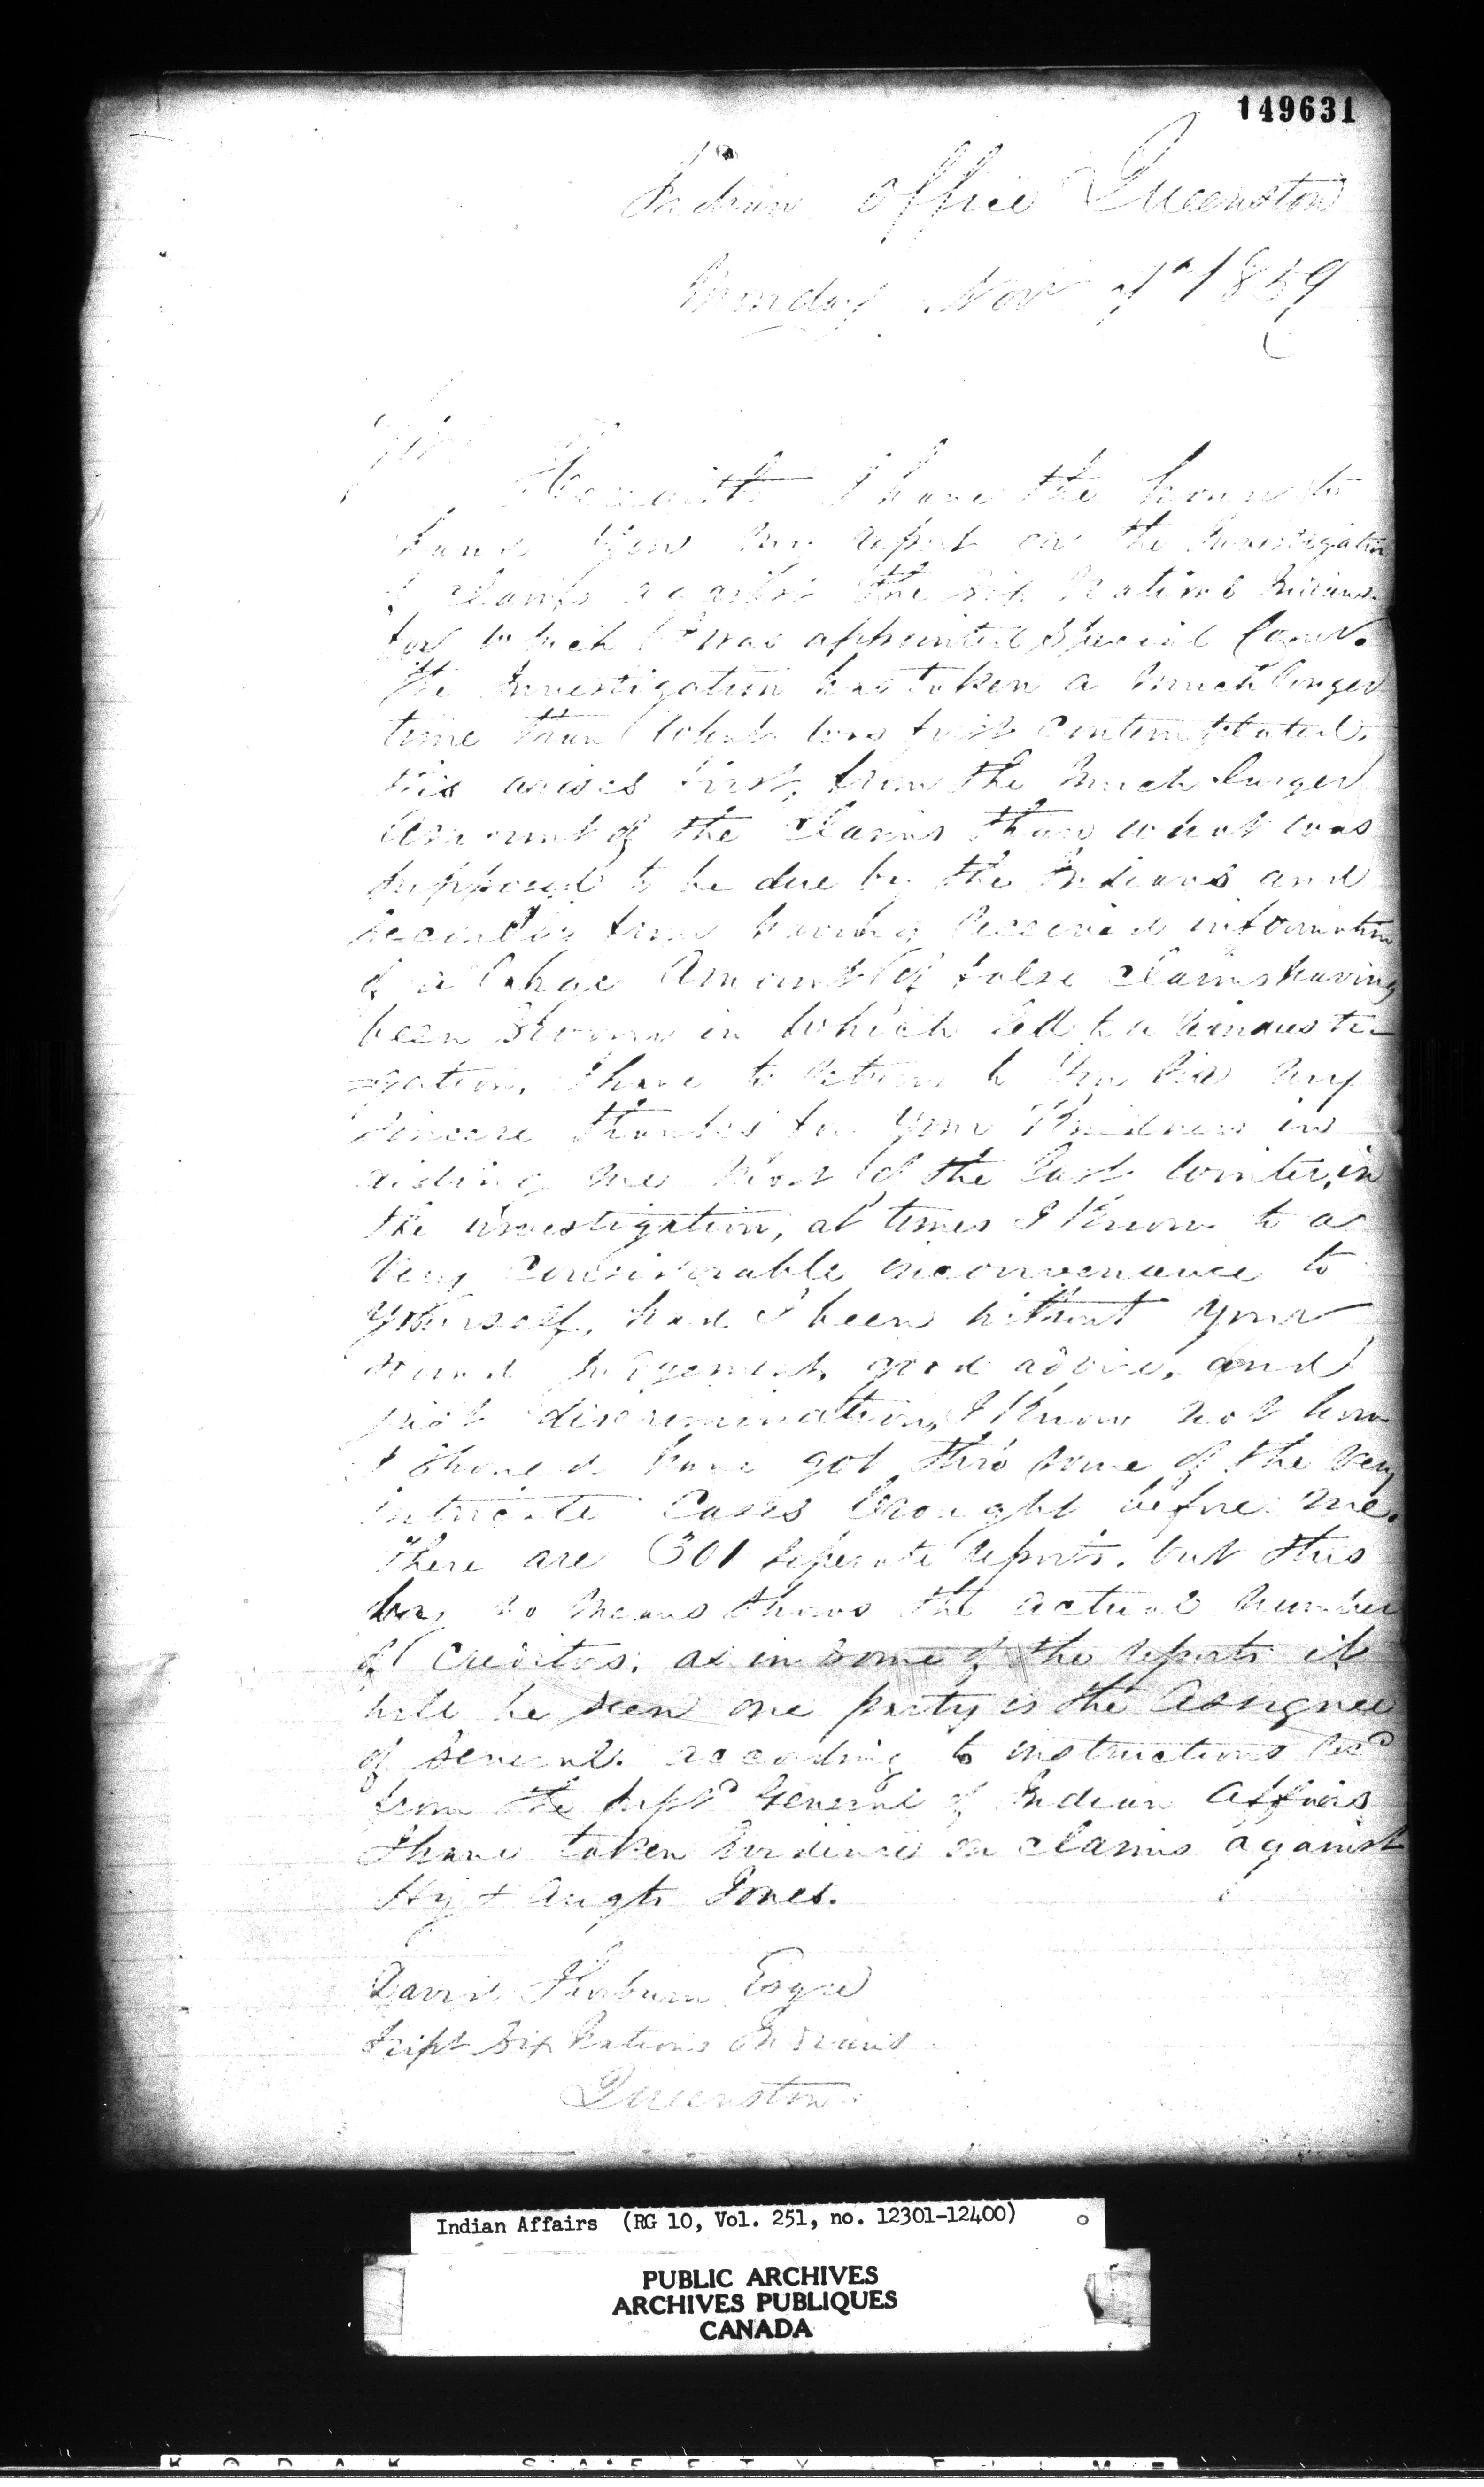 149631
Indian Office Queenston
Monday Nov 7th 1859
Sir
Herewith I have the honor to
hand you my report on the Investigation
of claims against the Six Nations Indians
for which I was appointed Special Comr.
The Investigation has taken a much longer
time than what was first contemplated.
this arises first, from the much larger
amount of the Claims than what was
supposed to be due by the Indians and
secondly from having received information
of a large Amount of false claims having
been sworn in which led to a
I have to return to you Sir my
sincere thanks for your Kindness in
aiding me most of the last Winter, in
the investigation, at times I know to a
very considerable inconvenience to
yourself, had I been without your
sound judgement, good advice, and
just discrimination, I know not how
I should have got thro some of the very
intricate Cases brought before me.
There are 301 seperate reports. but this
by no means shows the actual number
of Creditors. as in some of the reports it
will be seen one party is the Assignee
of several. according to instructions Recd
from the Supt General of Indian Affairs
I have taken evidence on claims against
Hy & Augts Jones.
David Thorburn Esqre
Supt Six Nations Indians
Queenston
Indian Affairs (RG 10, Vol. 251, no. 12301-12400)
PUBLIC ARCHIVES
ARCHIVES PUBLIQUES
CANADA
KODAK SAFETY FILM